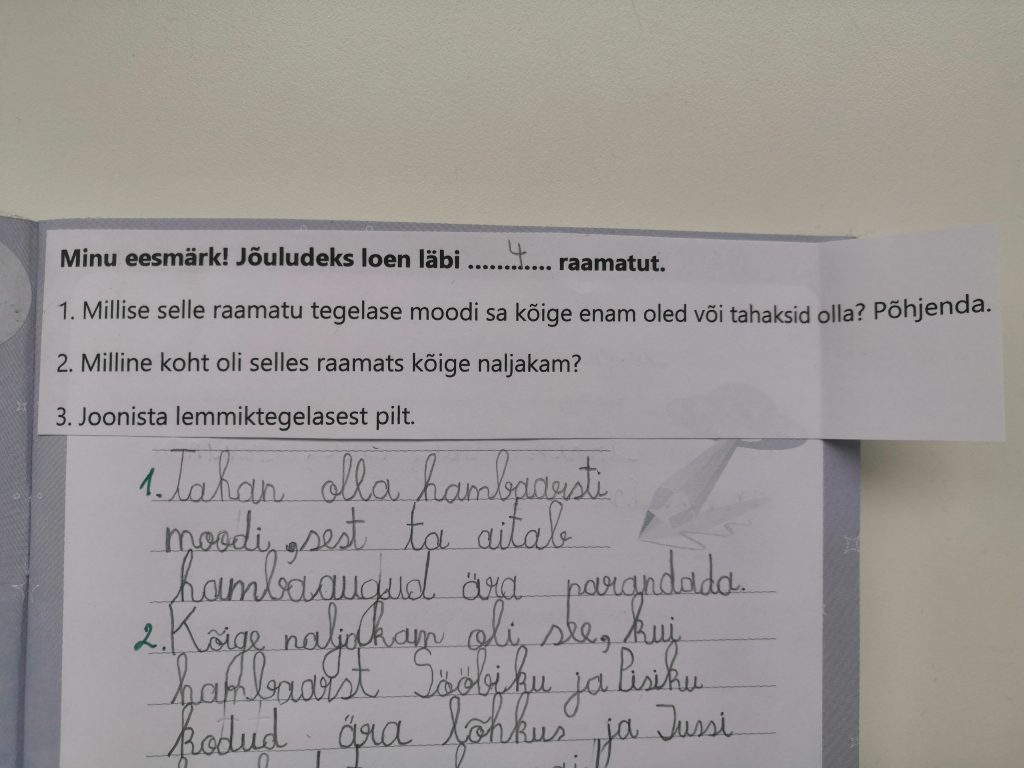 Minu eesmärk! Jõuludeks loen läbi .....4..... raamatut.
1. Millise selle raamatu tegelase moodi sa kõige enam oled või tahaksid olla? Põhjenda.
2. Milline koht oli selles raamats kõige naljakam?
3. Joonista lemmiktegelasest pilt.
1. Tahan olla hambaarsti
moodi, sest ta aitab
hambaaugud ära parandada.
2. Kõige naljakam oli see, kui
hambaarst Sööbiku ja Pisiku
kodud ära lõhkus ja Jussi